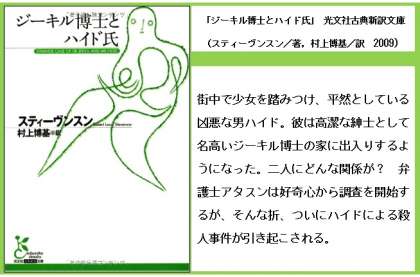 ジーキル博士と
ハイド氏
スティーヴンスン
村上博基●訳
「ジーキル博士とハイド氏」 光文社古典新訳文庫
（スティーヴンスン／著，村上博基／訳 2009）
街中で少女を踏みつけ、平然としている
凶悪な男ハイド。彼は高潔な紳士として
名高いジーキル博士の家に出入りするよ
うになった。二人にどんな関係が？ 弁
護士アタスンは好奇心から調査を開始す
るが、そんな折、ついにハイドによる殺
人事件が引き起こされる。